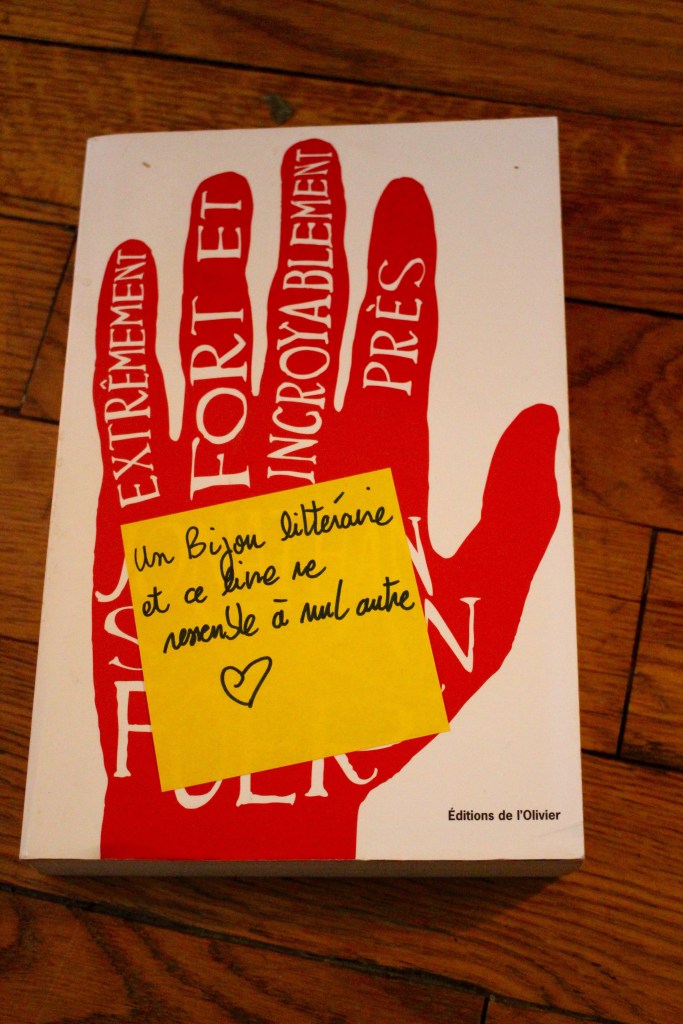 EXTRÊMEMENT
FORT ET
INCROYABLEMENT
PRÈS
Un Bijou littéraire
et ce livre ne
ressemble à nul autre
Éditions de l'Olivier